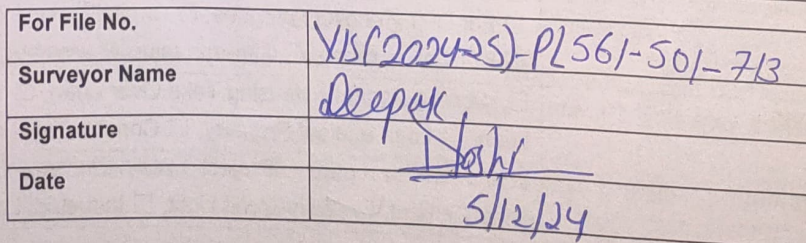 For File No. VIS(2024-25)-PL561-501-713
Surveyor Name Deepak
Signature Joshi
Date 5/12/24